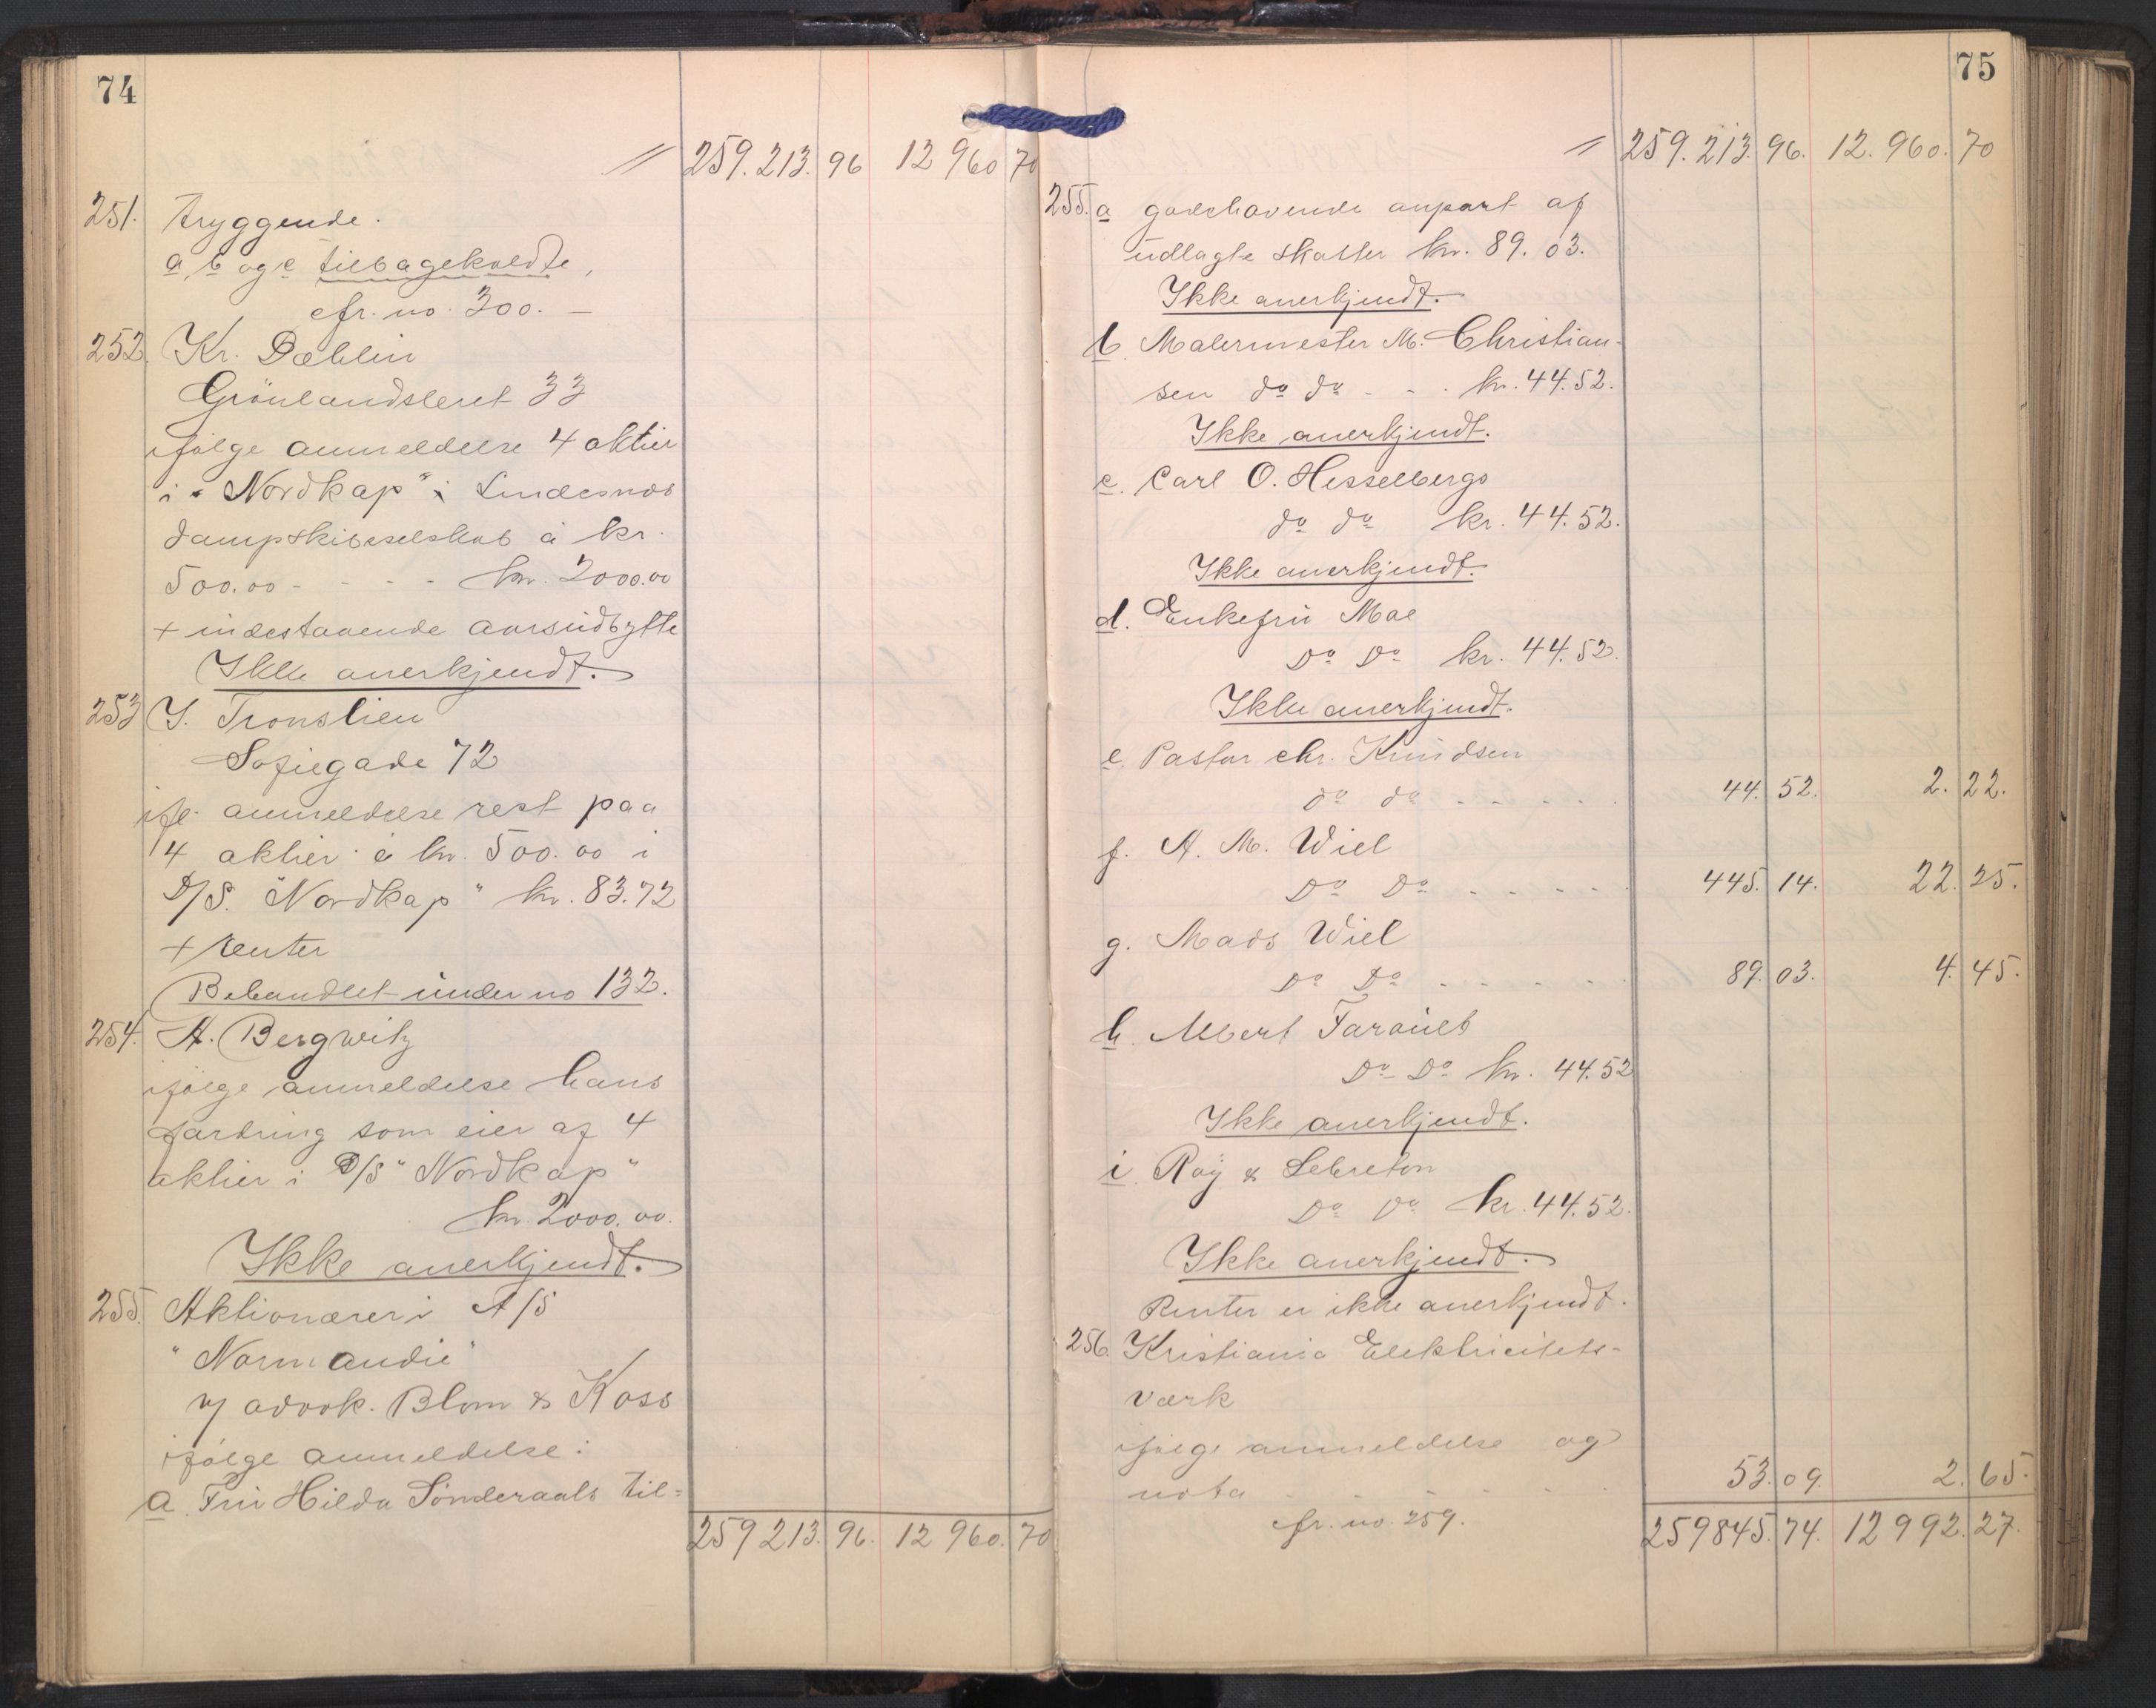 74
// 259.213.96 12 960 70
251. Tryggende.
a, b og c tilbagekaldte,
cfr. no. 300. —
252. Kr. Dæhlin
Grönlandsleret 33
ifölge anmeldelse 4 aktier
i "Nordkap" i Lindesnæs
dampskibsselskab à kr.
500.00 - - - - kr. 2000.00
+ indestaaende aarsudbytte
Ikke anerkjendt.
253 J. Tronslien
Sofiegade 72
ifl. anmeldelse rest paa
4 aktier à kr. 500.00 i
D/S. "Nordkap" kr. 83.72
+ renter
Behandlet under no 132.
254. A. Bergwitz
ifölge anmeldelse hans
fordring som eier af 4
aktier i D/S "Nordkap"
kr 2000.00.
Ikke anerkjendt.
255. Aktionærer i A/S
"Normandie"
v/ advok. Blom & Koss
ifölge anmeldelse:
a. Fru Hilda Sönderaals til=
259 213. 96. 12 960. 70
75
// 259.213. 96. 12.960. 70
255. a godehavende anpart af
udlagte skatter kr. 89.03.
Ikke anerkjendt.
b. Malermester M. Christian-
sen do do - - - kr. 44.52.
Ikke anerkjendt.
c. Carl O. Hesselbergs
do do kr. 44.52.
Ikke anerkjendt.
d. Enkefru Moe
Do Do kr. 44.52.
Ikke anerkjendt.
e. Pastor Chr. Knudsen
do do - - - - - 44. 52. 2. 22.
f. A. M. Wiel
Do Do - - - - - 445. 14. 22. 25.
g. Mads Wiel
Do Do - - - - - 89. 03. 4. 45.
h. Albert
Do Do kr. 44.52
Ikke anerkjendt.
i Roy & Lebreton
Do Do kr. 44.52.
Ikke anerkjendt.
Renter er ikke anerkjendt.
256. Kristiania Elektricitets-
værk
ifölge anmeldelse og
nota - - - - - 53. 09. 2. 65.
cfr. no. 259.
259845. 74. 12 992. 27.